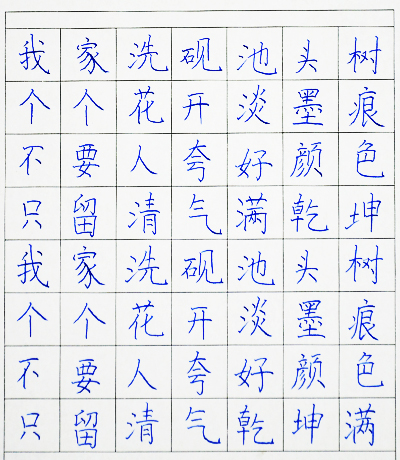 我家洗砚池头树
个个花开淡墨痕
不要人夸好颜色
只留清气满乾坤
我家洗砚池头树
个个花开淡墨痕
不要人夸好颜色
只留清气乾坤满